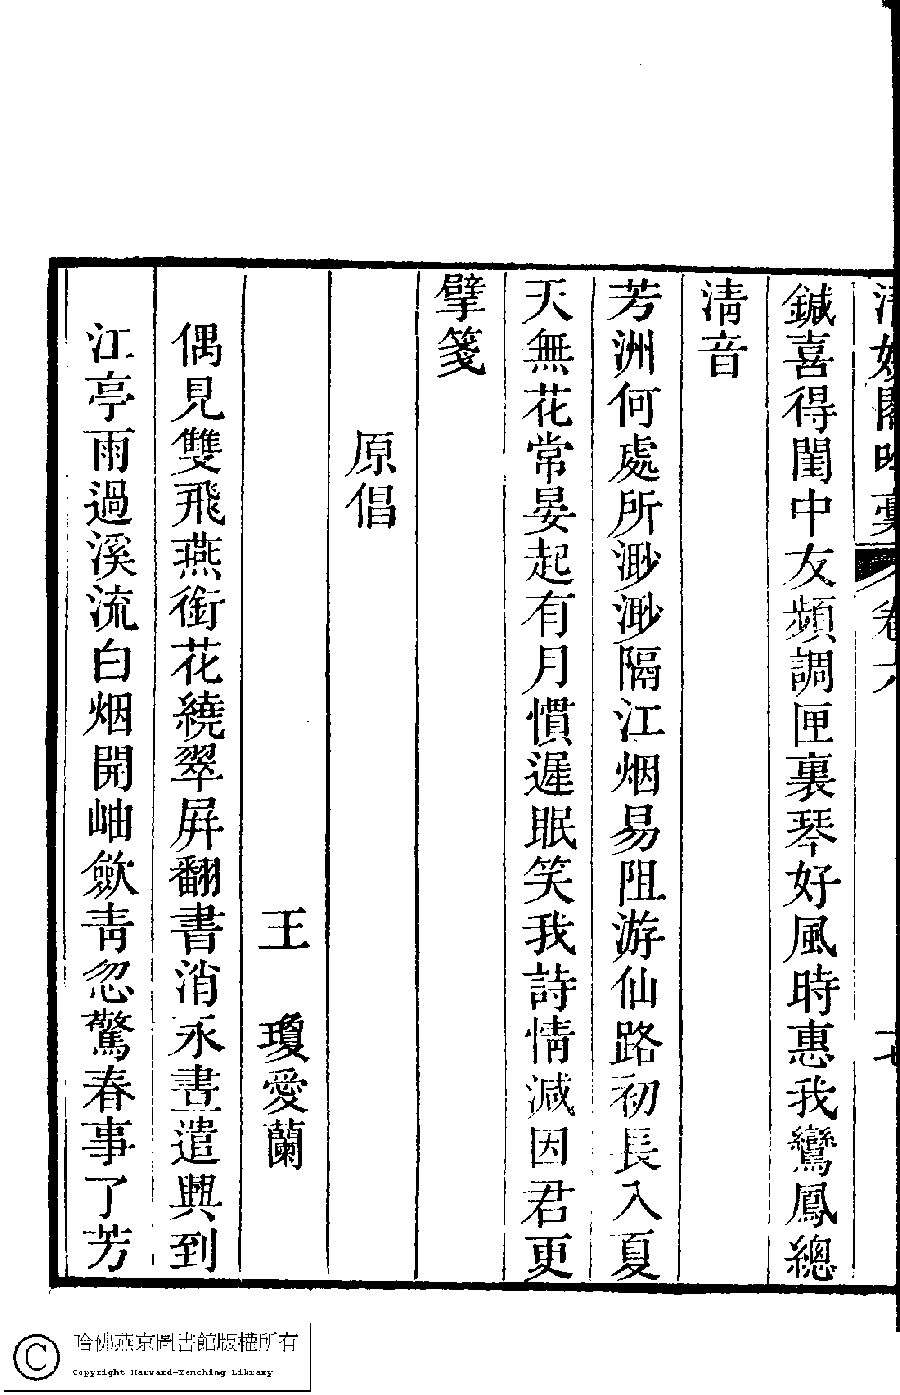 清娛閣吟稾 卷六 七
鍼喜得閨中友頻調匣裏琴好風時惠我鸞鳳總
淸音
芳洲何處所渺渺隔江烟易阻游仙路初長入夏
天無花常晏起有月慣遲眠笑我詩情減因君更
擘箋
原倡
王瓊愛蘭
偶見雙飛燕銜花繞翠屛翻書消永晝遣興到
江亭雨過溪流白烟開岫歛靑忽驚春事了芳
哈佛燕京圖書館版權所有
Copyright Harvard-Yenching Library